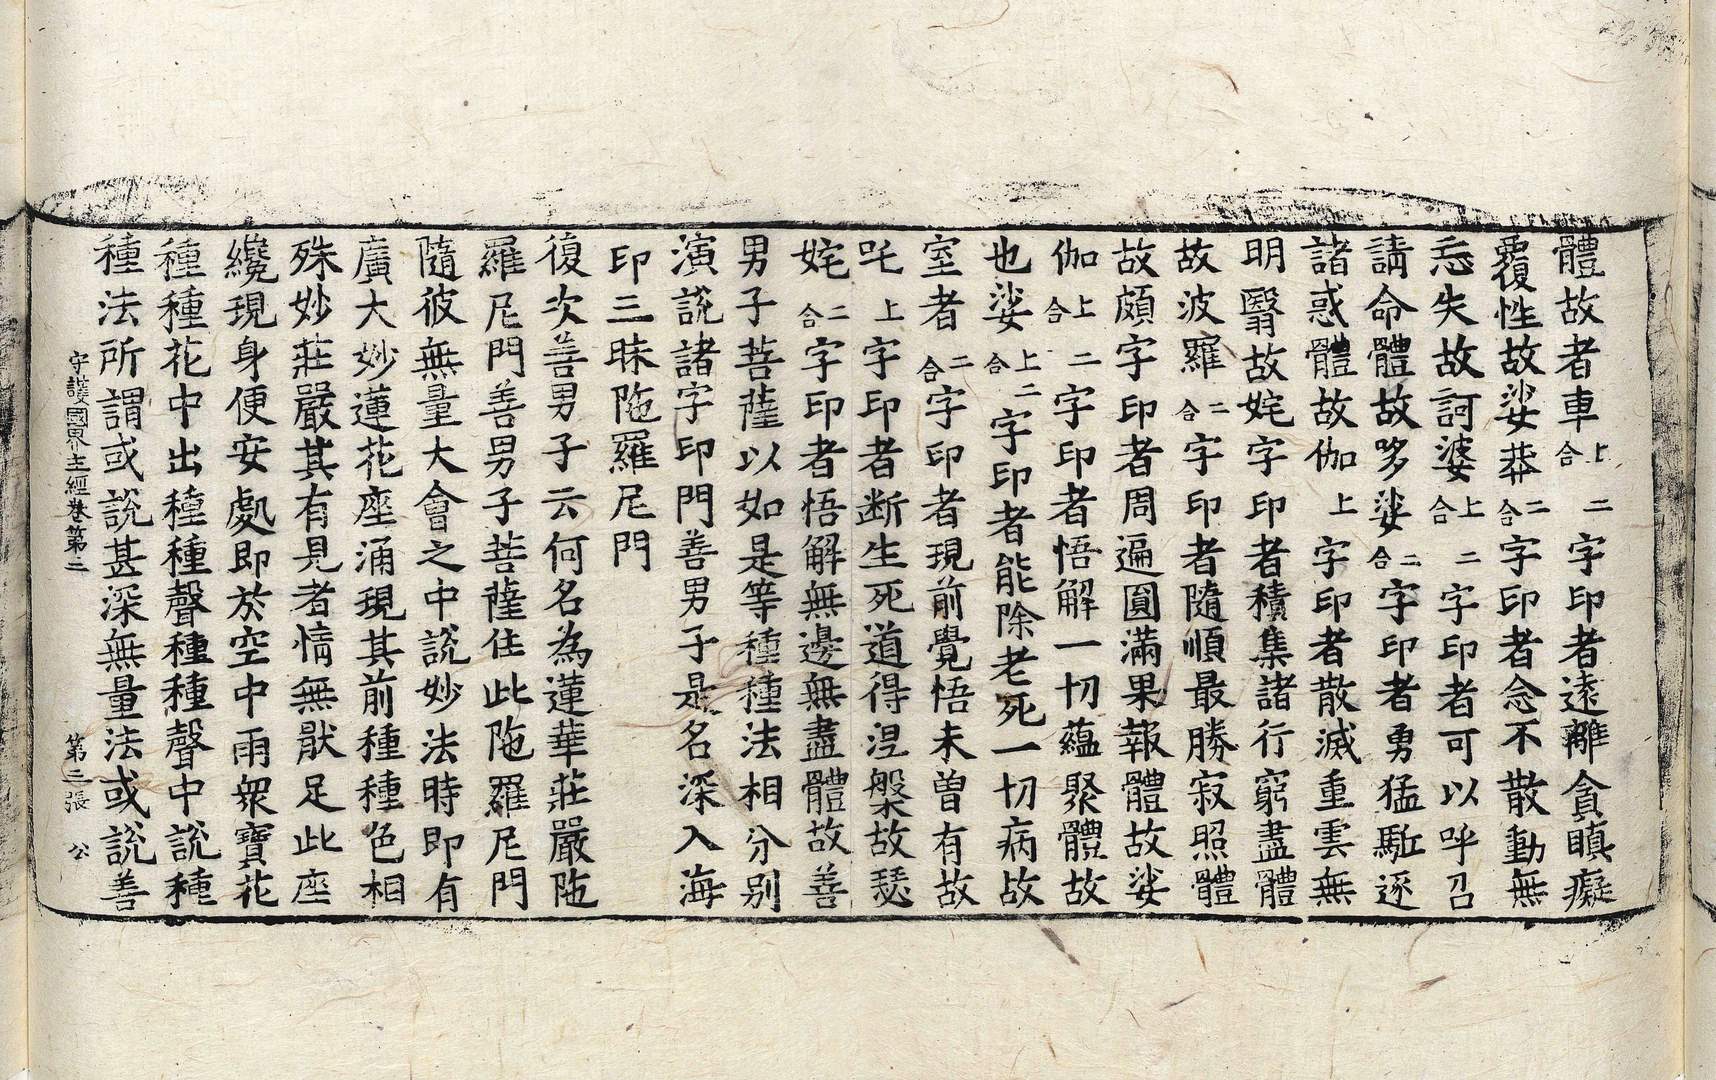 體故者車上二合字印者遠離貪瞋癡
覆性故娑莽二合字印者念不散動無
忘失故訶婆上二合字印者可以呼召
請命體故哆娑二合字印者勇猛駈逐
諸惑體故伽上字印者散滅重雲無
明翳故姹字印者積集諸行窮盡體
故波羅二合字印者隨順最勝寂照體
故頗字印者周遍圓滿果報體故娑
伽上二合字印者悟解一切蘊聚體故
也娑上二合字印者能除老死一切病故
室者二合字印者現前覺悟未曾有故
吒上字印者断生死道得涅槃故瑟
姹二合字印者悟解無邊無盡體故善
男子菩薩以如是等種種法相分别
演說諸字印門善男子是名深入海
印三昧陁羅尼門
復次善男子云何名為蓮華莊嚴陁
羅尼門善男子菩薩住此陁羅尼門
隨彼無量大會之中說妙法時即有
廣大妙蓮花座涌現其前種種色相
殊妙莊嚴其有見者情無猒足此座
纔現身便安處即於空中雨衆寶花
種種花中出種種聲種種聲中說種
種法所謂或說甚深無量法或說善
守護國界主經卷第二　第二張　公